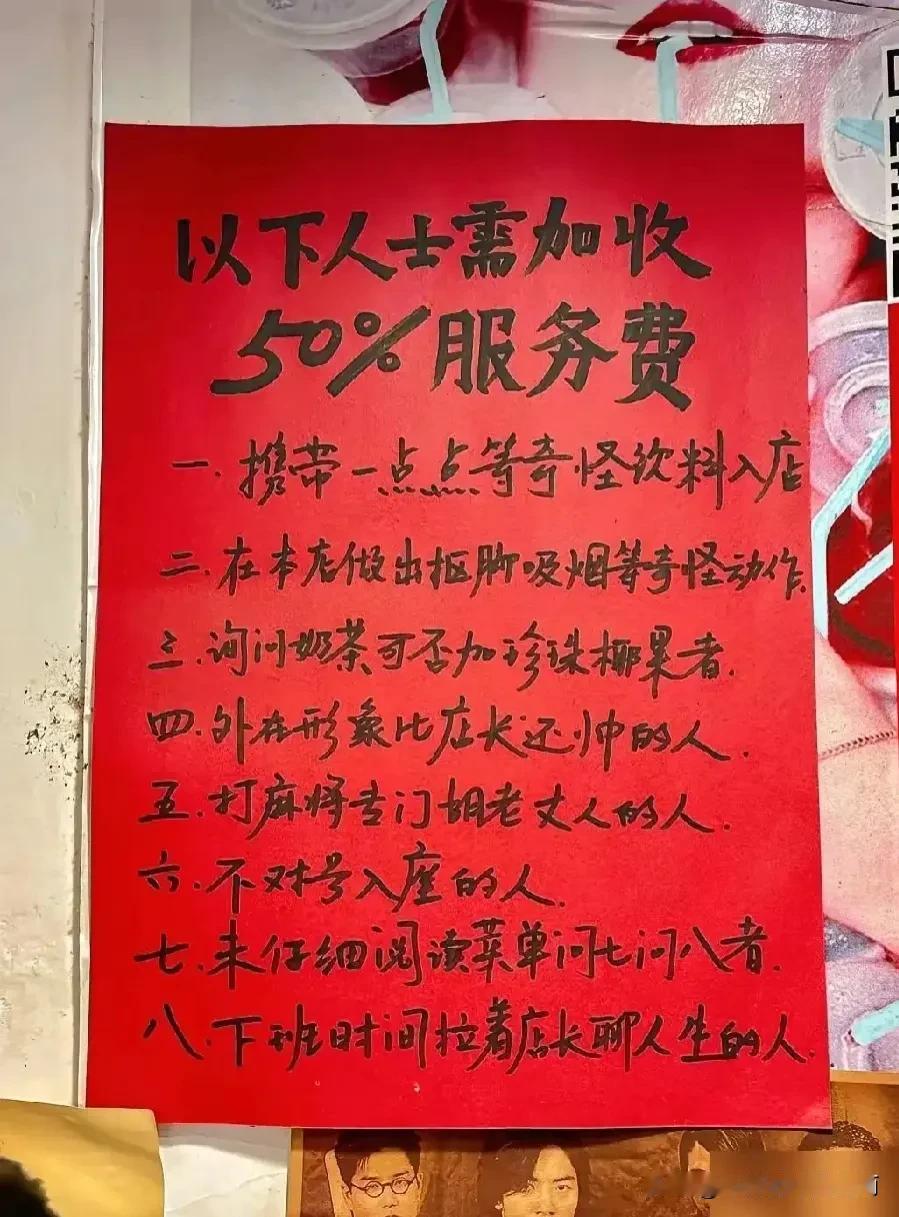 以下人士需加收
50%服务费
一.携带一点点等奇怪饮料入店
二.在本店做出抠脚吸烟等奇怪动作.
三.询问奶茶可否加珍珠椰果者.
四.外在形象比店长还帅的人.
五.打麻将专门胡老丈人的人.
六.不对号入座的人.
七.未仔细阅读菜单问七问八者.
八.下班时间拉着店长聊人生的人.